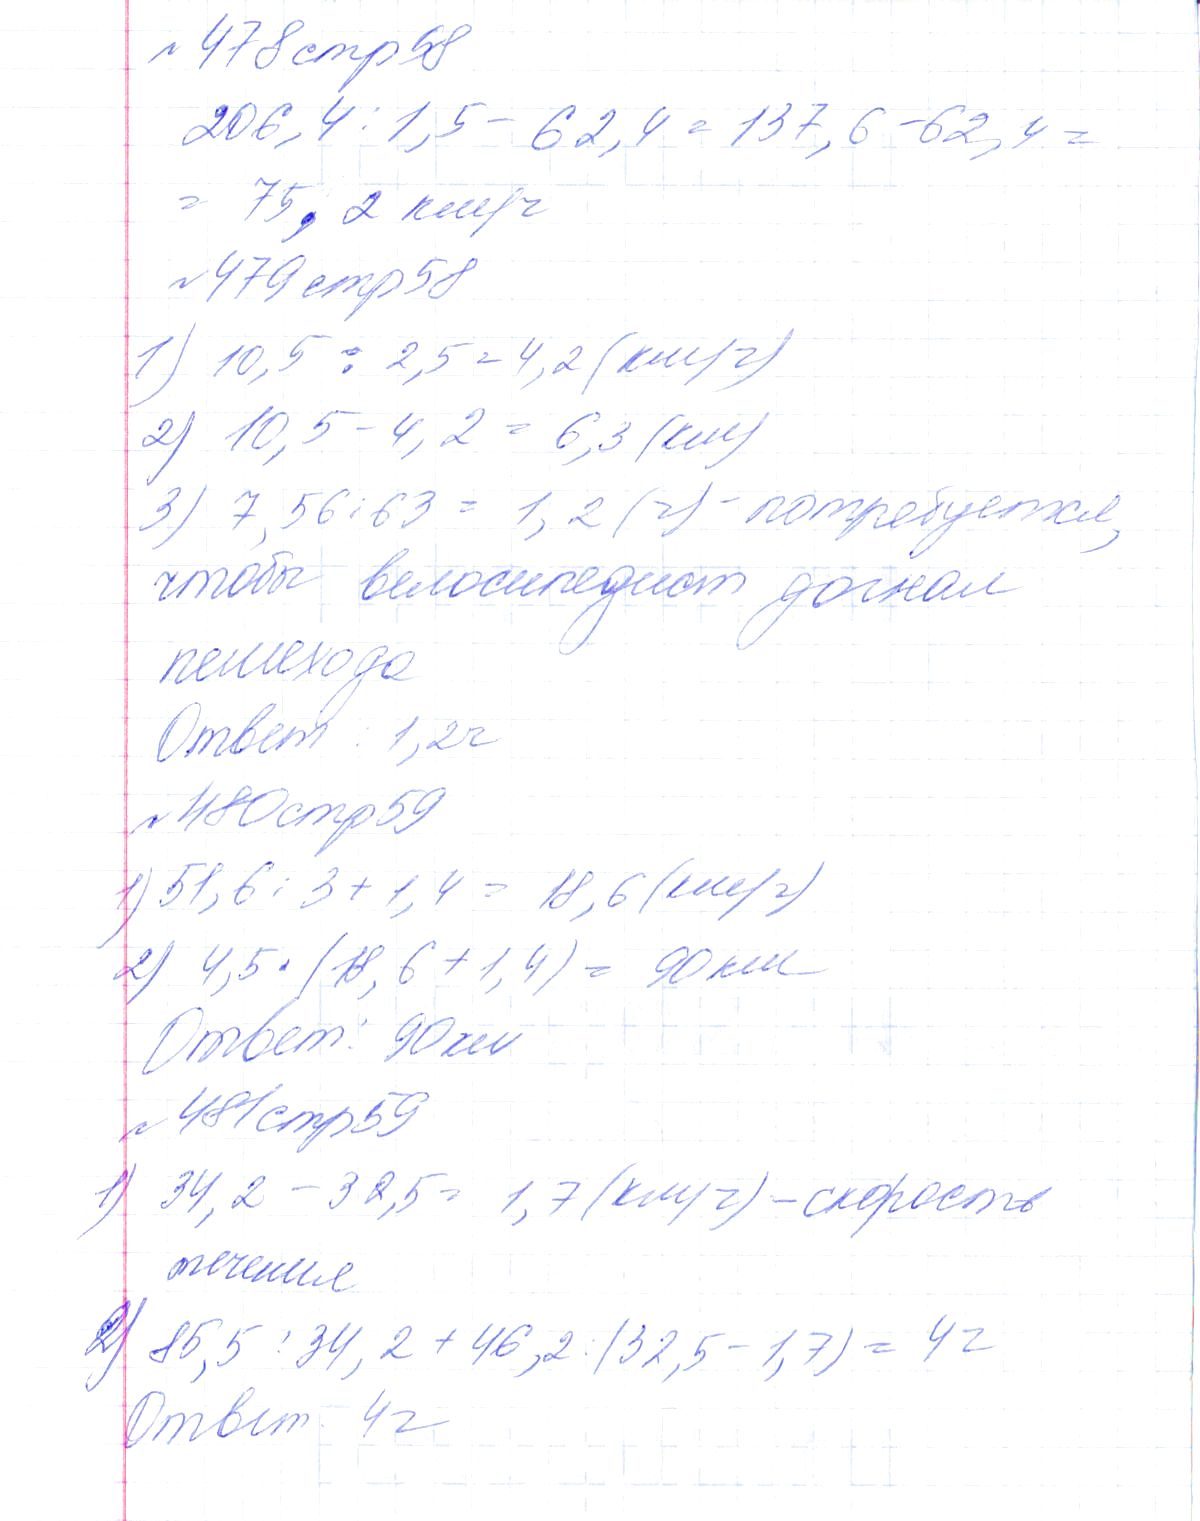 №478стр58
206,4:1,5-62,4=137,6-62,4=
= 75,2 км/ч
№479стр58
1) 10,5:2,5=4,2(км/ч)
2) 10,5-4,2=6,3(км)
3) 7,56:63=1,2(ч)-потребуется,
чтобы велосипедист догнал
пешехода
Ответ: 1,2ч
№480стр59
1) 51,6:3+1,4=18,6(км/ч)
2) 4,5·(18,6+1,4)=90км
Ответ: 90км
№481стр59
1) 34,2-32,5=1,7(км/ч)-скорость
течения
2) 85,5:34,2+46,2:(32,5-1,7)=4ч
Ответ 4ч